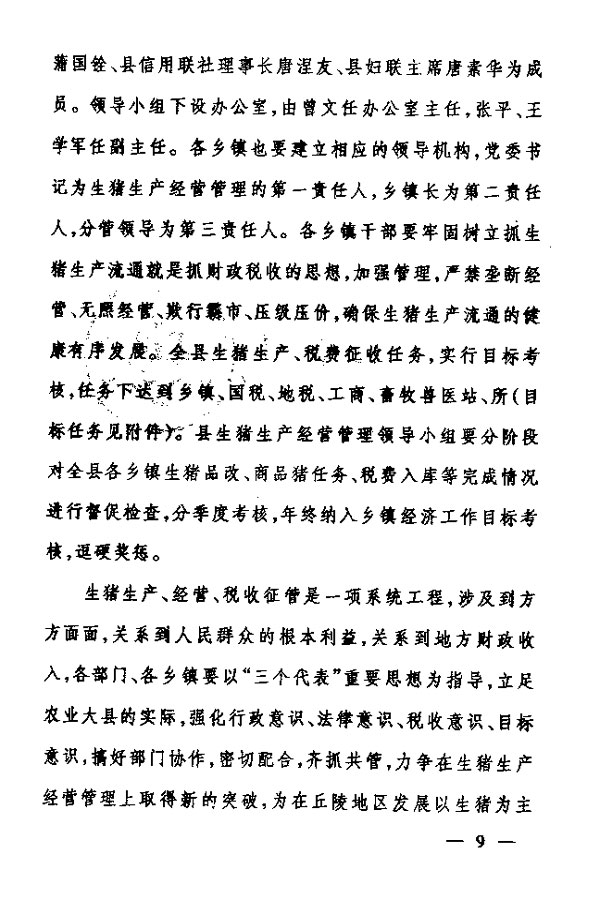 蒲国铨、县信用联社理事长唐涅友、县妇联主席唐素华为成
员。领导小组下设办公室,由曾文任办公室主任,张平、王
学军任副主任。各乡镇也要建立相应的领导机构,党委书
记为生猪生产经营管理的第一责任人,乡镇长为第二责任
人,分管领导为第三责任人。各乡镇干部要牢固树立抓生
猪生产流通就是抓财政税收的思想,加强管理,严禁垄断经
营、无照经营、欺行霸市、压级压价,确保生猪生产流通的健
康有序发展。全县生猪生产、税费征收任务,实行目标考
核,任务下达到乡镇、国税、地税、工商、畜牧兽医站、所(目
标任务见附件)。县生猪生产经营管理领导小组要分阶段
对全县各乡镇生猪品改、商品猪任务、税费入库等完成情况
进行督促检查,分季度考核,年终纳入乡镇经济工作目标考
核,逗硬奖惩。
生猪生产、经营、税收征管是一项系统工程,涉及到方
方面面,关系到人民群众的根本利益,关系到地方财政收
入,各部门、各乡镇要以“三个代表”重要思想为指导,立足
农业大县的实际,强化行政意识、法律意识、税收意识、目标
意识,搞好部门协作,密切配合,齐抓共管,力争在生猪生产
经营管理上取得新的突破,为在丘陵地区发展以生猪为主
— 9 —